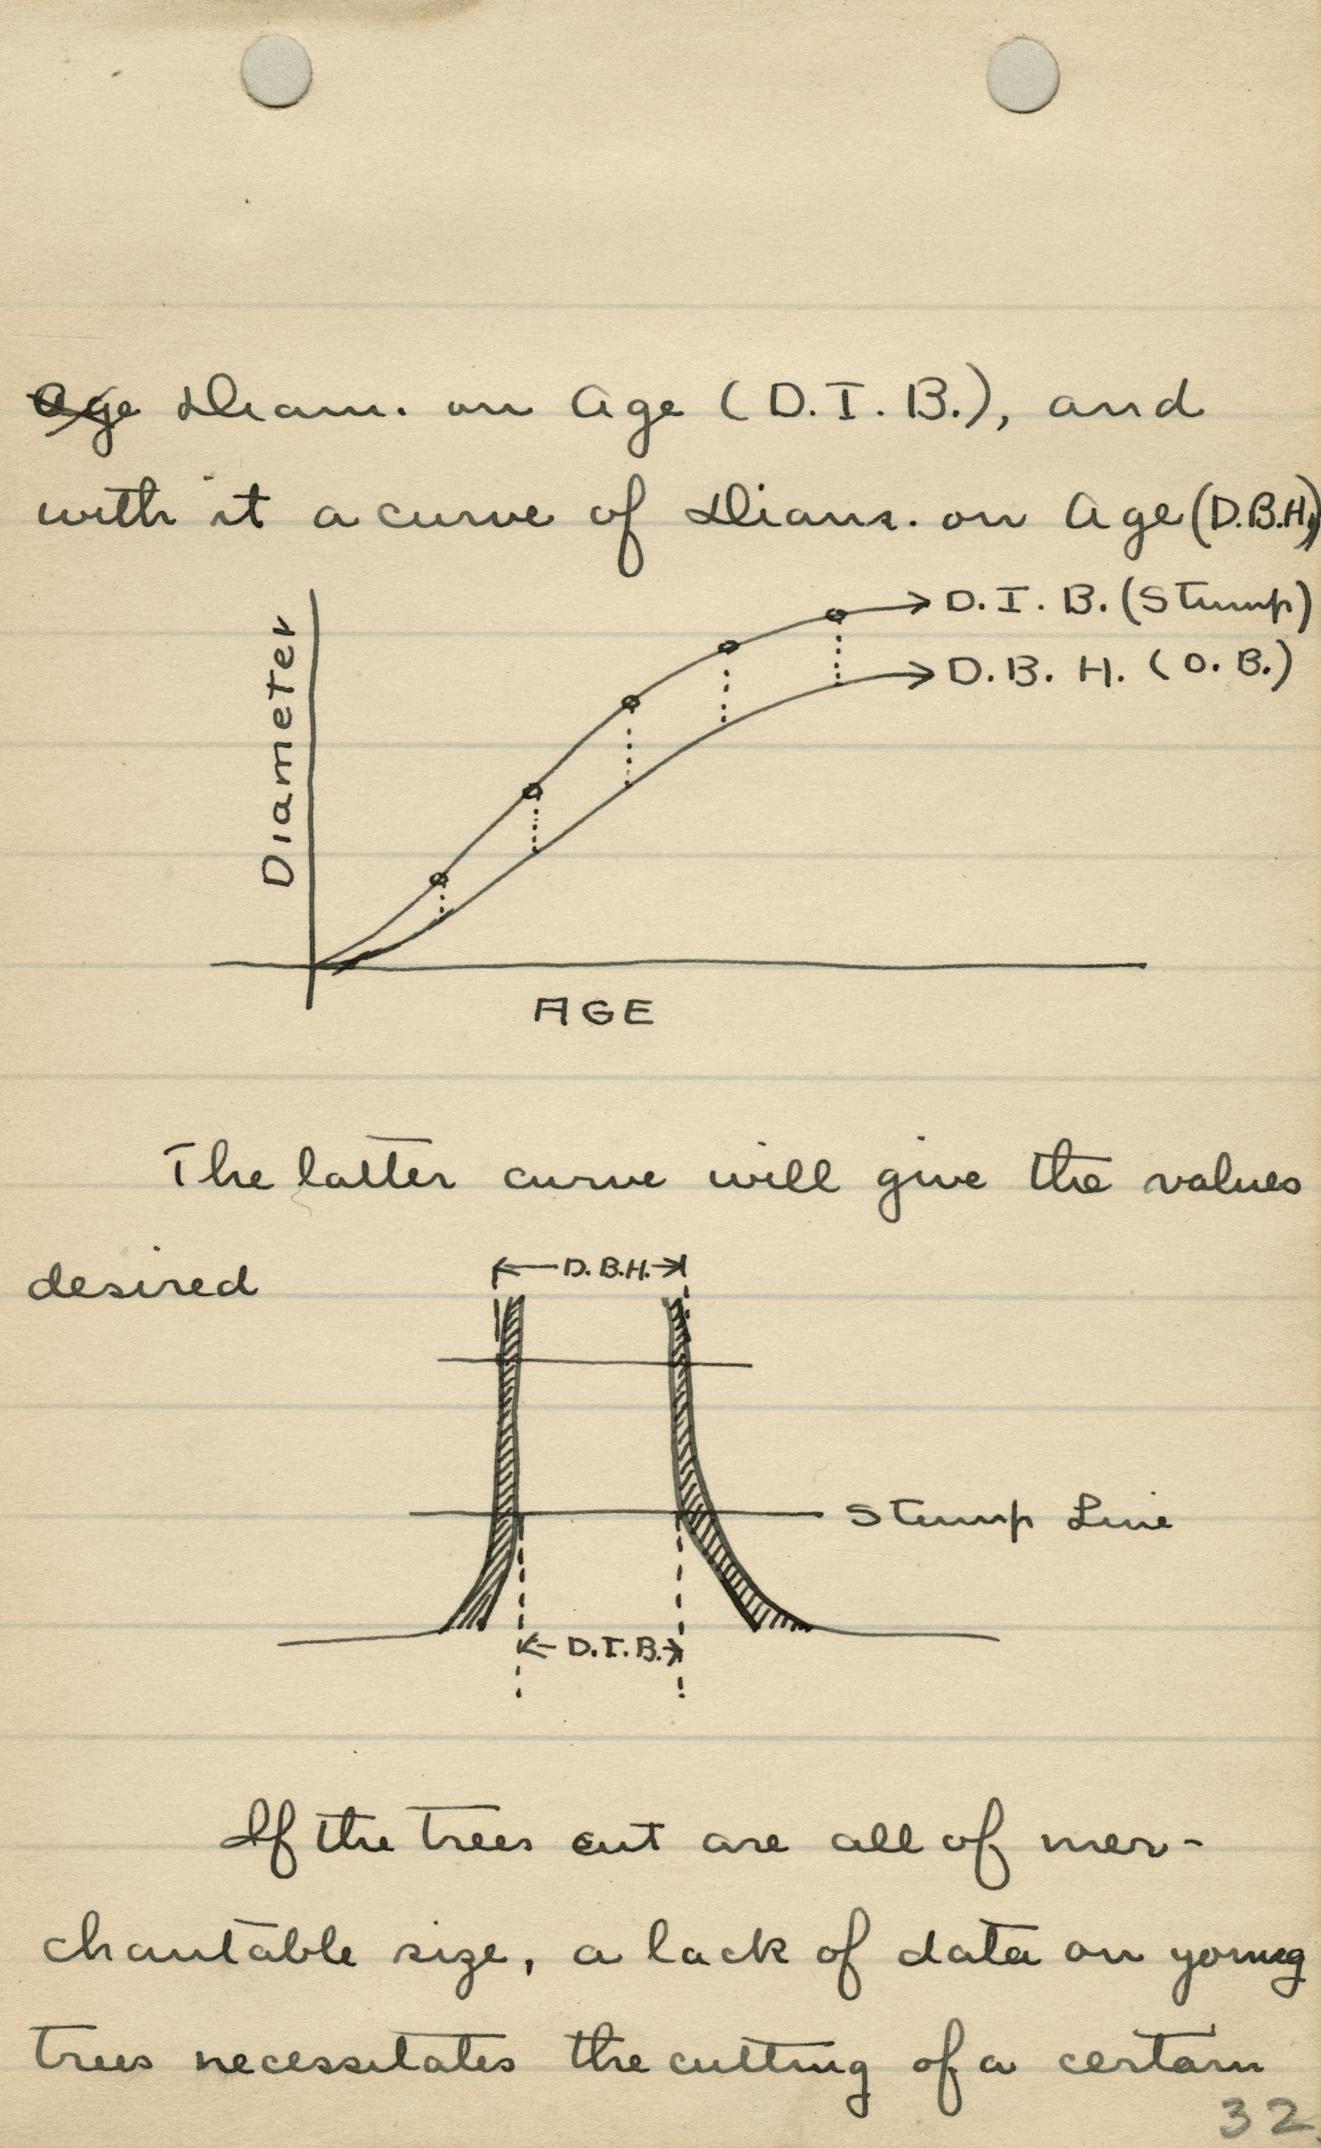 Age Diam. on Age (D.I.B.), and
with it a curve of Diam. on Age (D.B.H.)
D.I.B. (Stump)
D.B.H. (O.B.)
Diameter
AGE
The latter curve will give the values
desired
D.B.H.
Stump Line
D.I.B.
If the trees cut are all of mer-
chantable size, a lack of data on young
trees necessitates the cutting of a certain
32.